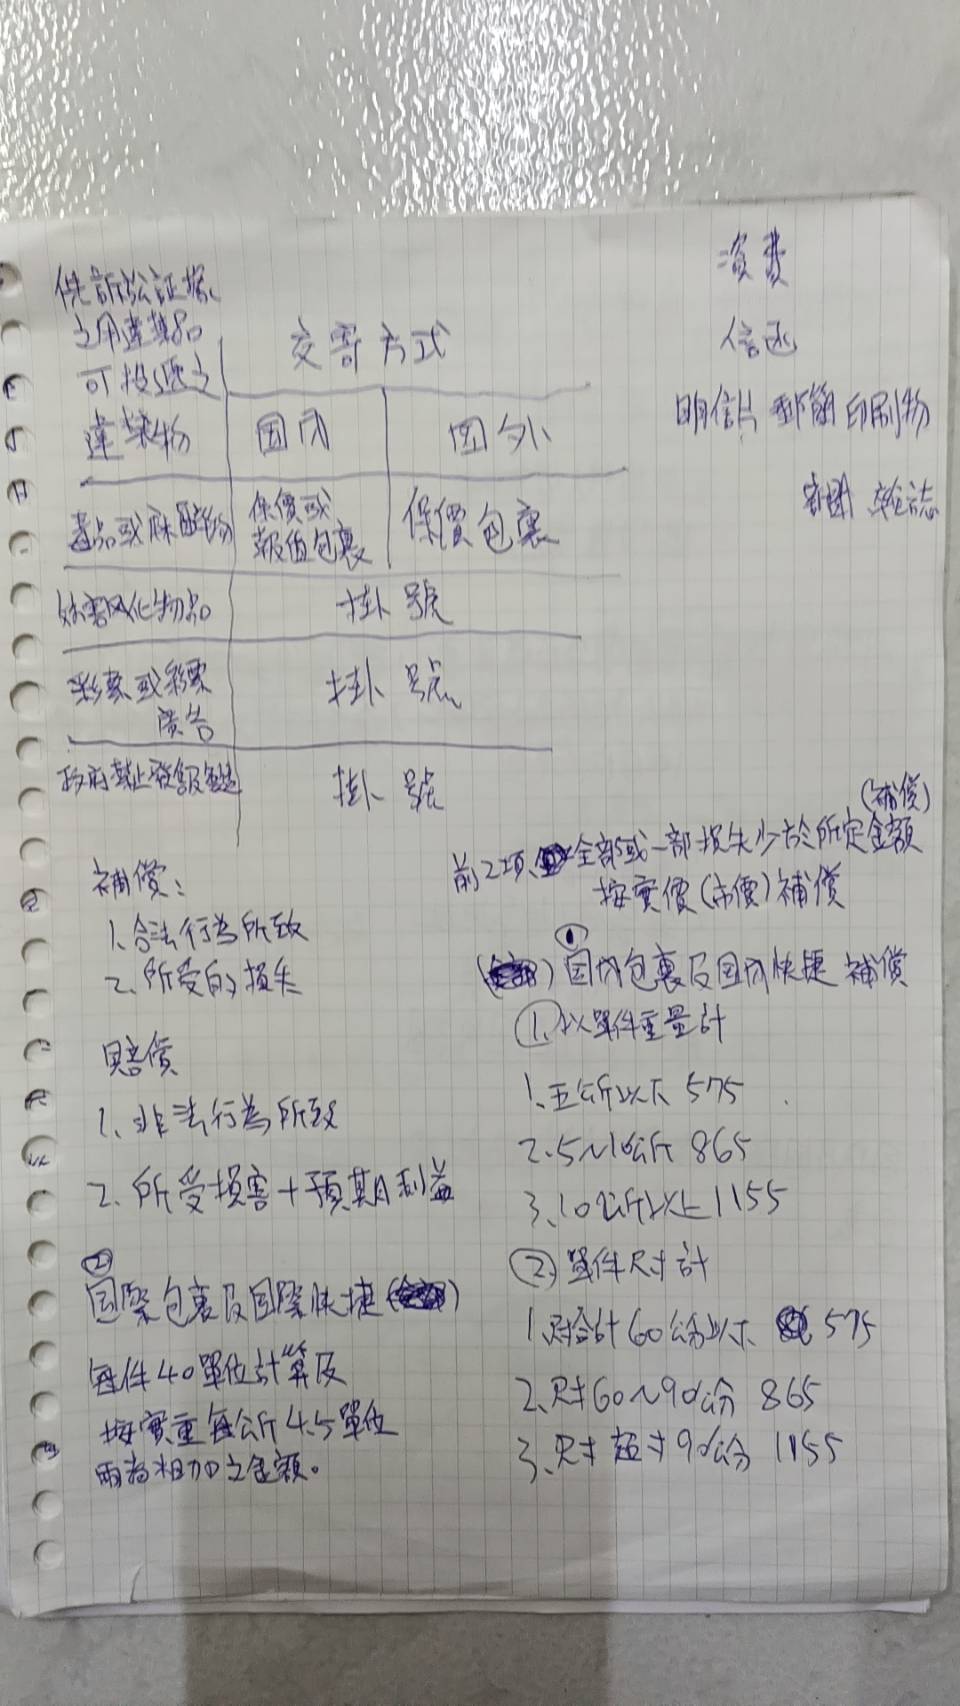 供訴訟証據
之用違禁品
可投遞之
違禁物
交寄方式
国内
国外
毒品或麻醉物
保價或
報值包裹
保價包裹
妨害风化物品
掛號
彩票或彩票
廣告
掛號
政府禁止
掛號
資費
信函
明信片 郵簡 印刷物
新聞 雜誌
補償:
1、合法行為所致
2、所受的損失
賠償
1、非法行為所致
2、所受損害+預期利益
②
国際包裹及国際快捷
每件40單位計算及
按實重每公斤4.5單位
兩者相加之金額。
(補償)
前2項、全部或一部損失少於所定金額
按實價(市價)補償
①
国内包裹及国内快捷 補償
①以單件重量計
1、五公斤以下 575
2、5~10公斤 865
3、10公斤以上 1155
②單件尺寸計
1、尺寸合計60公分以下 575
2、尺寸60~90公分 865
3、尺寸超过90公分 1155